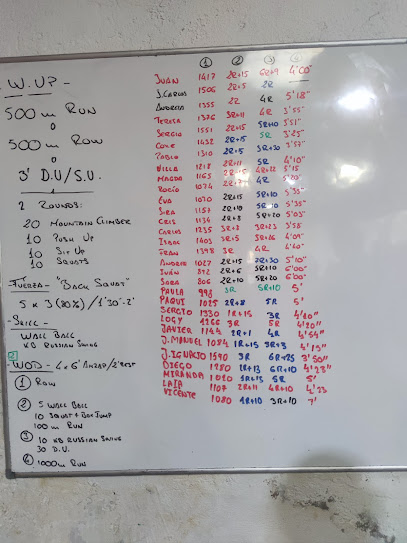 - W.UP -
500 m RUN
o
500 m ROW
o
3' D.U/S.U.
2 ROUNDS:
20 MOUNTAIN CLIMBER
10 PUSH UP
10 SIT UP
10 SQUATS
- FUERZA - "BACK SQUAT"
5 x 3 (80%) / 1'30"-2'
- SKILL -
WALL BALL
KB RUSSIAN SWING
- WOD - 4 x 6' AMRAP / 2' REST
① ROW
② 5 WALL BALL
10 SQUAT + BOX JUMP
100 m RUN
③ 10 KB RUSSIAN SWING
30 D.U.
④ 1000 m RUN
① ② ③ ④
JUAN 1417 2R+15 6R+9 4'00"
J.CARLOS 1506 2R+5 2R 5'18"
ANDREEA 1355 2R 4R 3'55"
TERESA 1376 3R+11 4R
SERGIO 1551 2R+15 5R+10 3'51"
1432 2R+15 5R 3'25"
PABLO 1310 2R+5 3R+20 3'57"
VILLA 1218 2R+11 5R 4'10"
MAGDA 1165 2R+15 4R+12 5'15"
ROCÍO 1074 2R+7 4R 5'20"
EVA 1070 2R+15 5R+10 5'35"
SIRA 1157 2R+10 5R+10 5'35"
CRIS 1136 2R+8 5R+20 5'03"
CARLOS 1235 3R+8 3R+23 5'58"
ISAAC 1403 3R+5 5R+16 4'09"
FRAN 1398 3R 4R 4'40"
ANDREA 1027 2R+15 2R+30 5'10"
IVÁN 892 2R+6 5R+10 6'00"
SARA 806 2R+10 5R+20 6'00"
PAULA 998 3R 5R+10 5'
PAQUI 1025 2R+8 5R 5'
SERGIO 1330 1R+15 3R 4'20"
LOGY 1266 3R 5R 4'20"
JAVIER 1144 2R+1 4R 5'54"
J.MANUEL 1084 1R+15 3R+3 4'15"
J.IGNACIO 1590 3R 6R+25 3'50"
DIEGO 1280 1R+13 6R+10 4'28"
MIRANDA 1080 2R+13 5R 5'
LAIA 1107 2R+11 4R+10 4'23
VICENTE 1080 4R+10 3R+10 7'